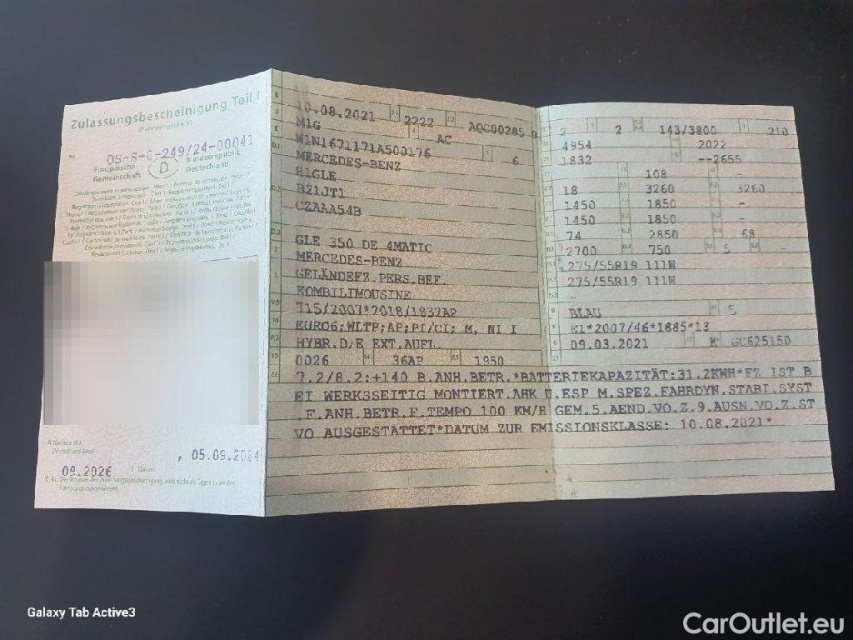 Zulassungsbescheinigung Teil I
OS-S-0-249/24-00041
Europäische
Gemeinschaft
D
Bundesrepublik
Deutschland
09.2026
, 05.09.2024
10.08.2021 2222 AQC00285
M1G AC
W1N1671171A500176 6
MERCEDES-BENZ
H1GLE
B21JT1
CZAAA54B
GLE 350 DE 4MATIC
MERCEDES-BENZ
GELÄNDEFZ.PERS.BEF.
KOMBILIMOUSINE
715/2007*2018/1832AP
EURO6;WLTP;AP;PI/CI; M, N1 I
HYBR.D/E EXT.AUFL.
0026 36AP 1950
2 2 143/3800 210
4954 2022
1832 --2655
108 -
18 3260 3260
1450 1850 -
1450 1850 -
74 2850 68
2700 750 5 -
275/55R19 111W
275/55R19 111W
-
BLAU 5
E1*2007/46*1885*13
09.03.2021 K GC625150
7.2/8.2:+140 B.ANH.BETR.*BATTERIEKAPAZITÄT:31.2KWH*FZ IST B
EI WERKSSEITIG MONTIERT.AHK U.ESP M.SPEZ.FAHRDYN.STABI.SYST
.F.ANH.BETR.F.TEMPO 100 KM/H GEM.5.AEND.VO.Z.9.AUSN.VO.Z.ST
VO AUSGESTATTET*DATUM ZUR EMISSIONSKLASSE: 10.08.2021*
Galaxy Tab Active3
CarOutlet.eu